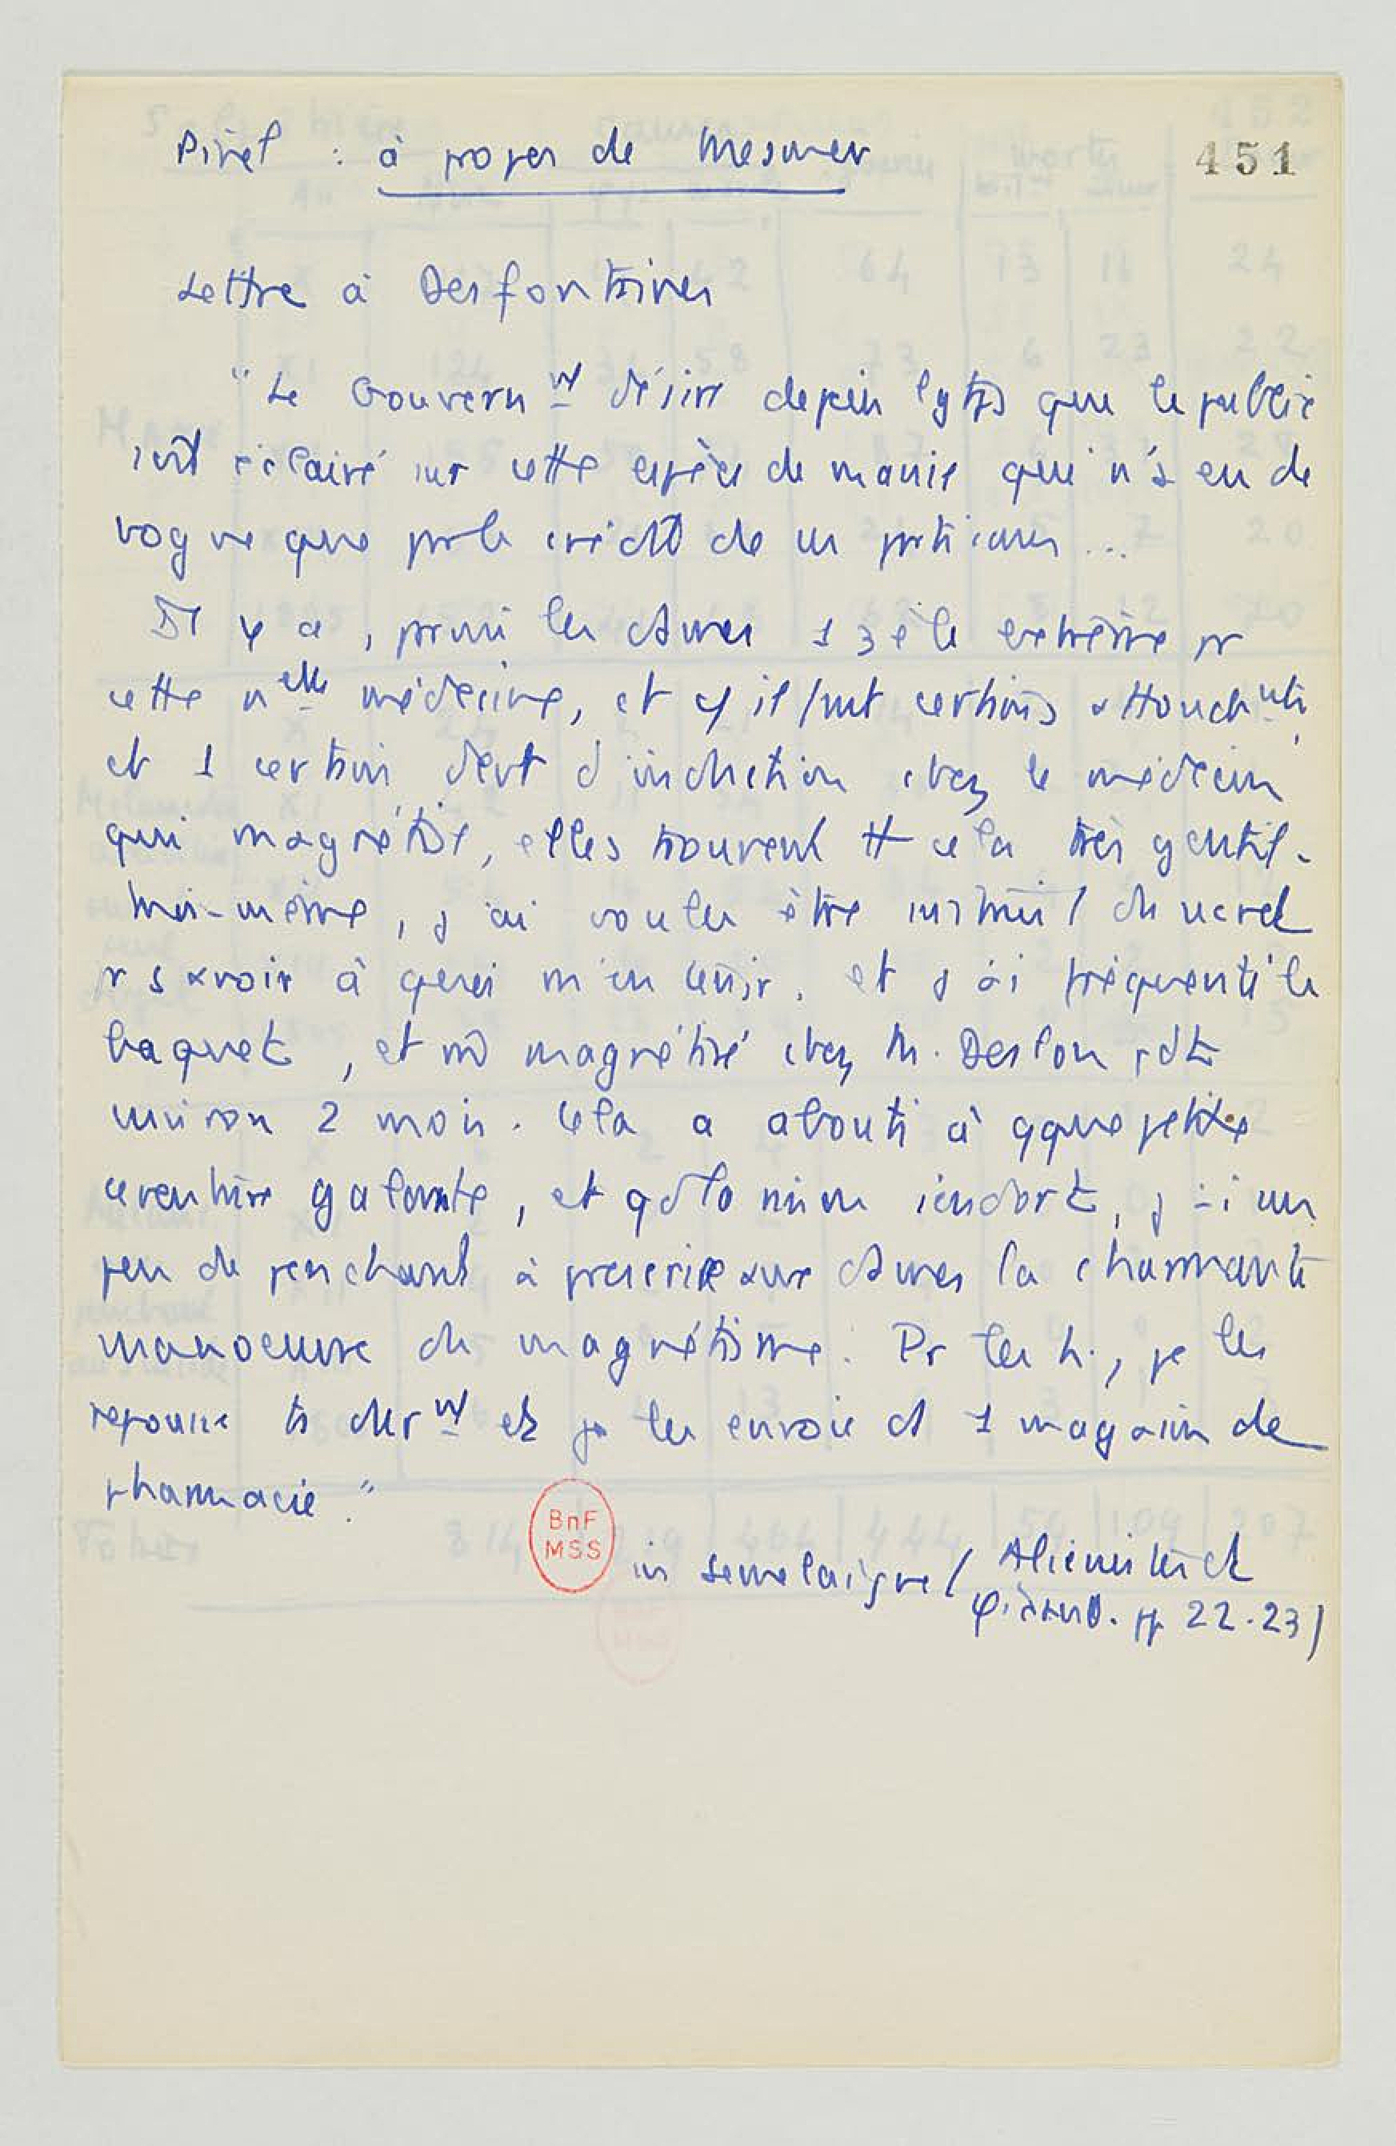 Pinel : à propos de Mesmer
451
Lettre à Desfontaines
"Le Gouvernt désire depuis lgtps que le public
soit éclairé sur cette espèce de manie qui n'a eu de
vogue que par le crédit de ces partisans ...
Il y a, parmi les dames 1 zèle extrême pr
cette nelle médecine, et cf il faut certains attouchnts,
et 1 certain d'inclination chez le médecin
qui magnétise, elles trouvent tt cela très gentil.
Moi-même, j'ai voulu être instruit du secret
pr savoir à quoi m'en tenir, et j'ai fréquenté le
baquet, et mê magnétisé chez M. Deslon pdt
environ 2 mois. Cela a abouti à qque petite
aventure galante, et qd la raison s'endort, j'ai un
peu de penchant à prescrire aux dames la charmante
manoeuvre du magnétisme. Pr les h., je les
repousse ts durnt et je les envoie ds 1 magasin de
pharmacie."
BnF
MSS
in Semelaigne (Aliénistes et
philanth. pp 22-23)